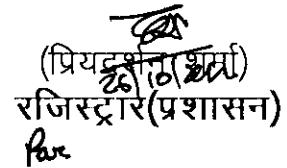 (प्रियदर्शन शर्मा)
20/10/2021
रजिस्ट्रार(प्रशासन)